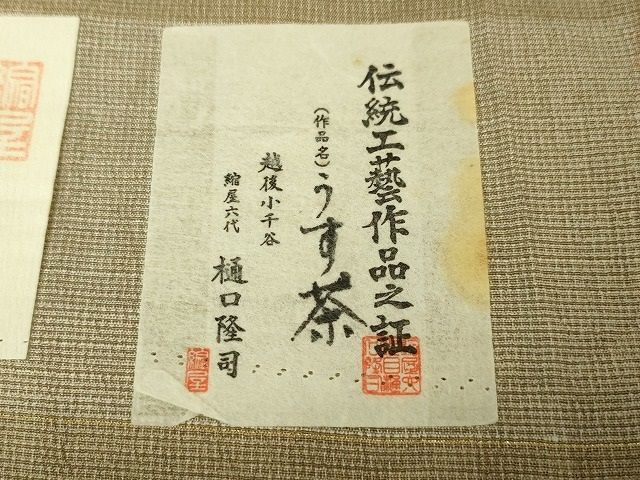 伝統工藝作品之証
(作品名)うす茶
越後小千谷
縮屋六代 樋口隆司
縮屋